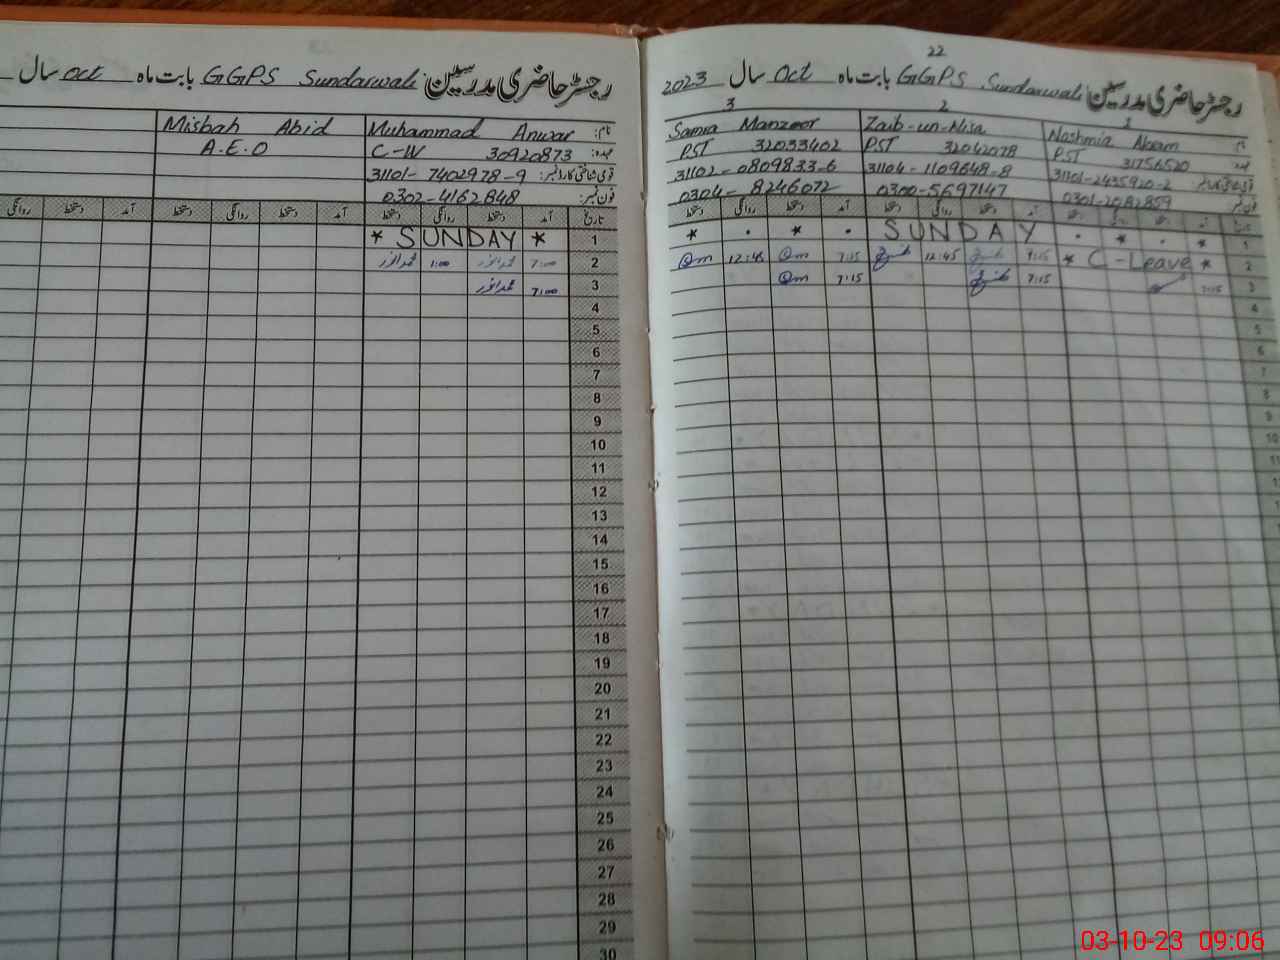 22
رجسٹر حاضری مدرسین GGPS Sundarwali بابت ماہ Oct سال 2023
3 2 1
نام Nashmia Akram
Zaib-un-Nisa
Samra Manzoor
عہدہ PST 31756520
PST 32042078
PST 32033402
قومی شناختی کارڈ نمبر 31101-2435920-2
31104-1109648-8
31102-0809833-6
فون نمبر 0301-2082859
0300-5697147
0304-8246072
تاریخ آمد دستخط روانگی دستخط آمد دستخط روانگی دستخط آمد دستخط روانگی دستخط
1 * . * . SUNDAY . * . *
2 * C-Leave * 7:15 12:45 7:15 Qm 12:45 Qm
3 7:15 7:15 7:15 Qm
4
5
6
7
8
9
10
11
رجسٹر حاضری مدرسین GGPS Sundarwali بابت ماہ Oct سال
نام: Muhammad Anwar
Misbah Abid
عہدہ: C-W 30920873
A.E.O
قومی شناختی کارڈ نمبر: 31101-7402978-9
فون نمبر: 0302-4162848
تاریخ آمد دستخط روانگی دستخط آمد دستخط روانگی دستخط آمد دستخط روانگی
1 * SUNDAY *
2 7:00 محمد انور 1:00 محمد انور
3 7:00 محمد انور
4
5
6
7
8
9
10
11
12
13
14
15
16
17
18
19
20
21
22
23
24
25
26
27
28
29
30
03-10-23 09:06